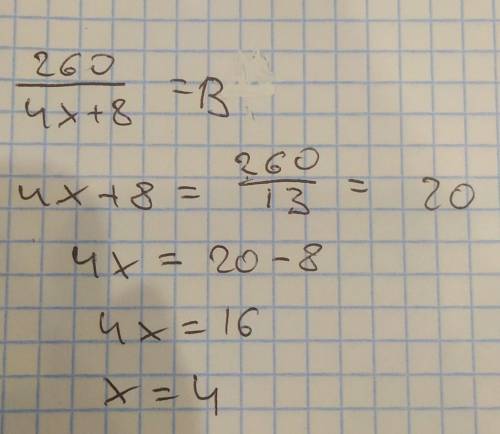 260/(4x+8) = 13
4x+8 = 260/13 = 20
4x = 20-8
4x = 16
x = 4